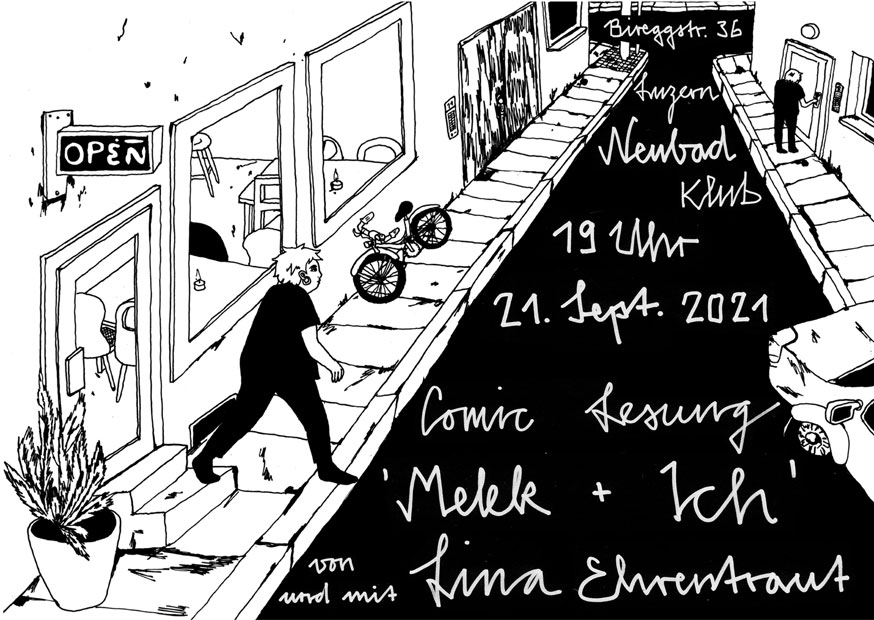 Bireggstr. 36
Luzern
Neubad
Klub
OPEN
19 Uhr
21. Sept. 2021
Comic Lesung
'Melek + Ich'
von
und mit Lina Ehrentraut